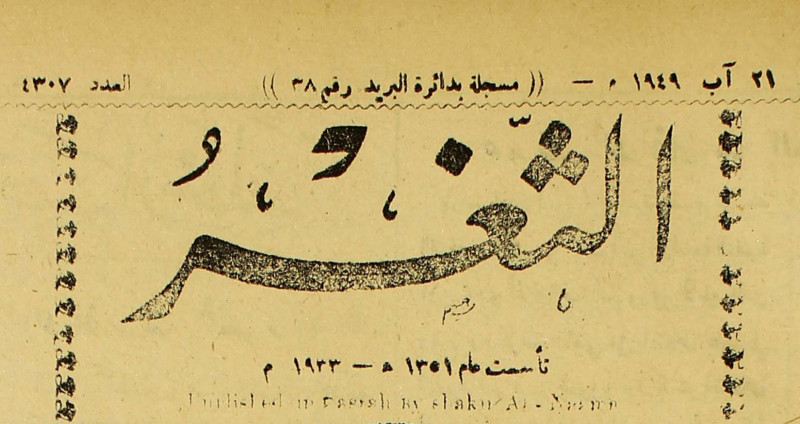 ٢١ آب ١٩٤٩ م — (( مسجلة بدائرة البريد رقم ٣٨ )) العدد ٤٣٠٧
الثَّغْرُ
تأسست عام ١٣٥١ ھ — ١٩٣٣ م
Published in Basrah by Shakir Al-